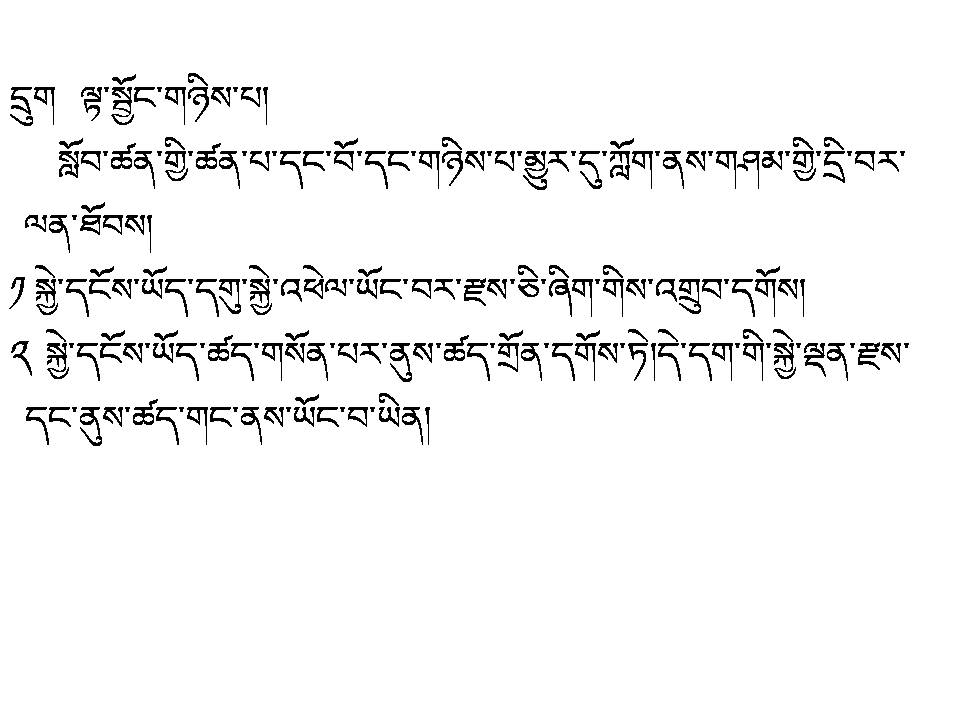 དྲུག ལྟ་སྦྱོང་གཉིས་པ།
སློབ་ཚན་གྱི་ཚན་པ་དང་བོ་དང་གཉིས་པ་མྱུར་དུ་ཀློག་ནས་གཤམ་གྱི་དྲི་བར་
ལན་ཐོབས།
༡ སྐྱེ་དངོས་ཡོད་དགུ་སྐྱེ་འཕེལ་ཡོང་བར་རྫས་ཅི་ཞིག་གིས་འགྲུབ་དགོས།
༢ སྐྱེ་དངོས་ཡོད་ཚད་གསོན་པར་ནུས་ཚད་གྲོན་དགོས་ཏེ།དེ་དག་གི་སྐྱེ་ལྡན་རྫས་
དང་ནུས་ཚད་གང་ནས་ཡོང་བ་ཡིན།